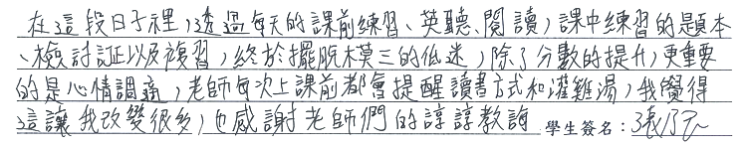 在這段日子裡,透過每天的課前練習、英聽、閱讀,課中練習的題本
、檢討証以及複習,終於擺脫模三的低迷,除了分數的提升,更重要
的是心情調適,老師每次上課前都會提醒讀書方式和灌雞湯,我覺得
這讓我改變很多,也感謝老師們的諄諄教誨 學生簽名:張